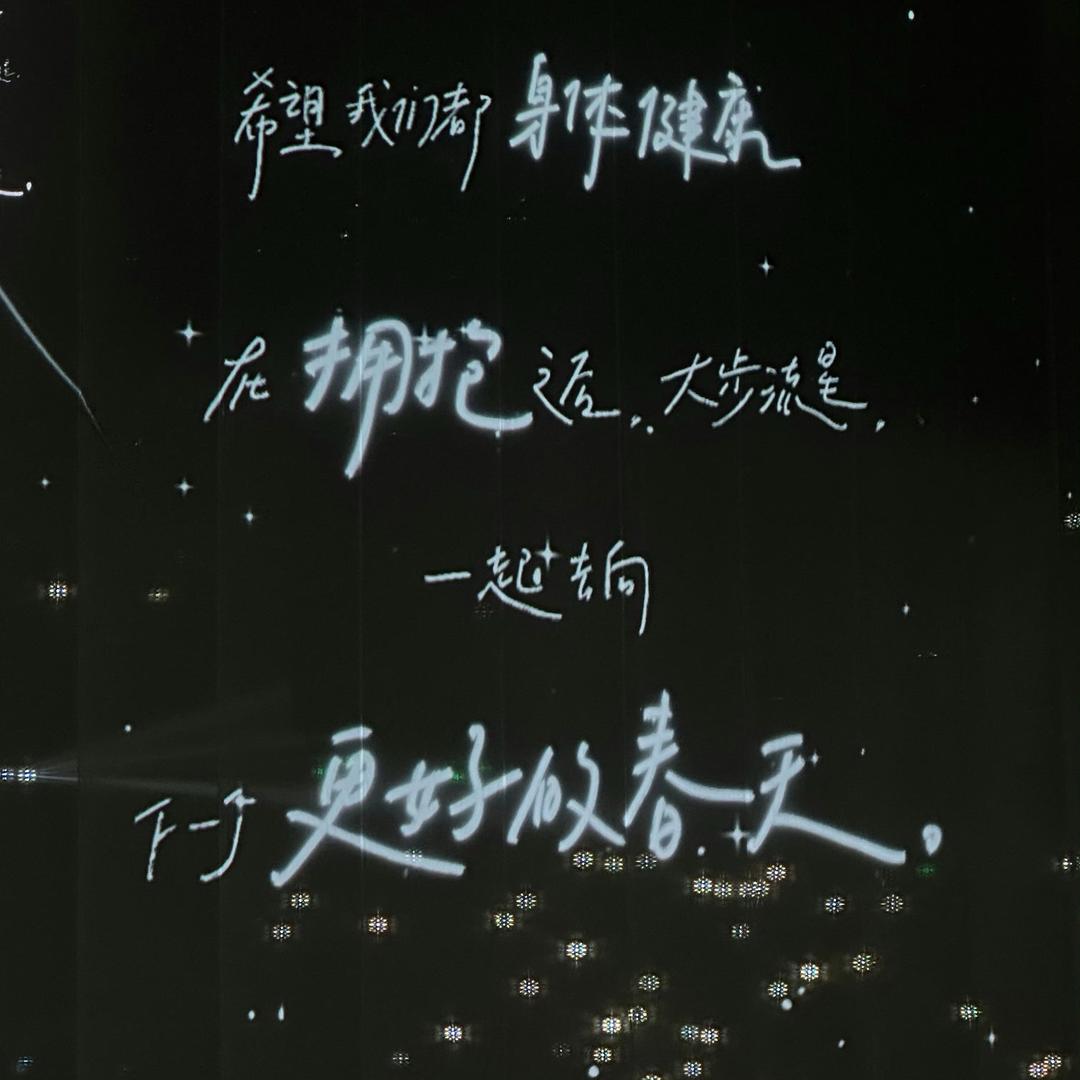 希望我们都身体健康
在拥抱之后,大步流星,
一起去向
下一个更好的春天。